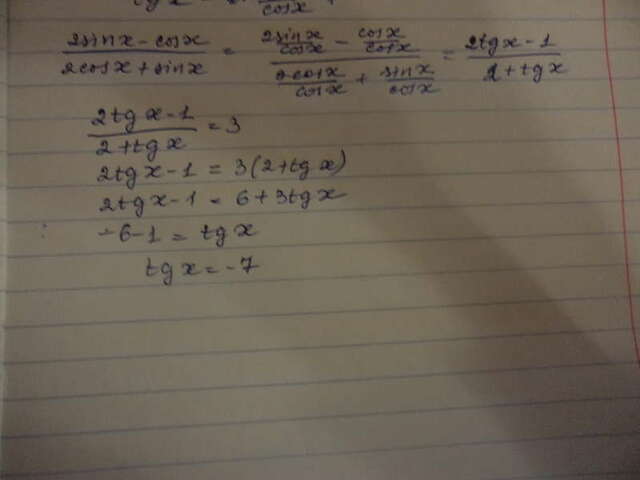 cosx
(2sinx - cosx)/(2cosx + sinx) = (2sinx/cosx - cosx/cosx)/(2cosx/cosx + sinx/cosx) = (2tgx - 1)/(2 + tgx)
(2tgx - 1)/(2 + tgx) = 3
2tgx - 1 = 3(2 + tgx)
2tgx - 1 = 6 + 3tgx
-6 - 1 = tgx
tgx = -7